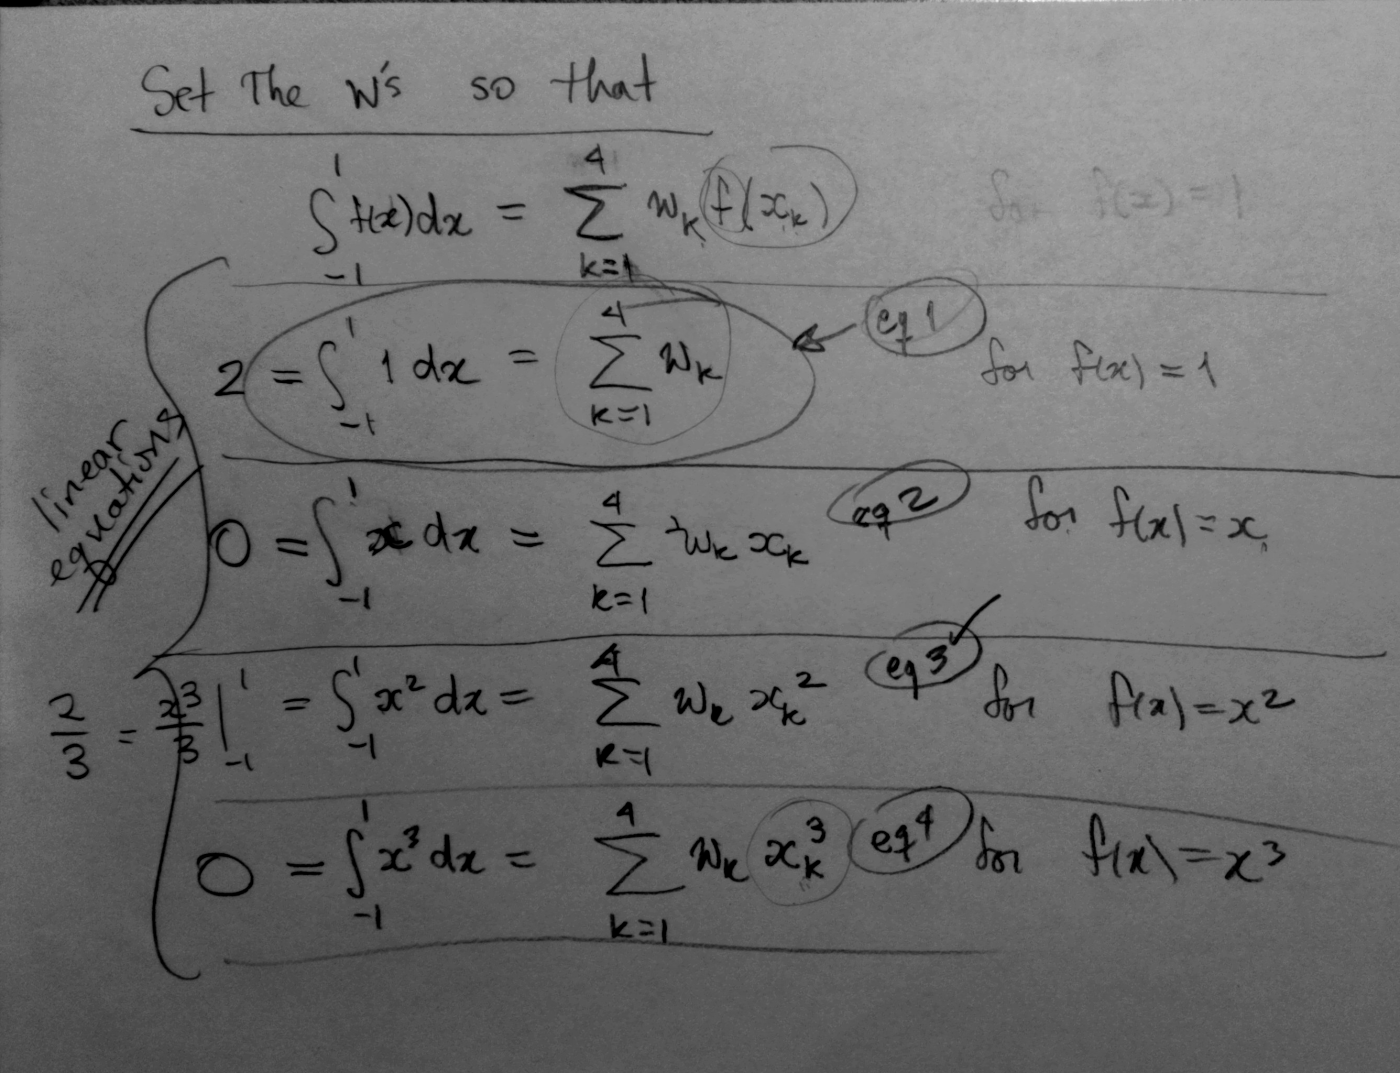 Set The W's so that
∫_{-1}^{1} f(x)dx = ∑_{k=1}^{4} w_k f(x_k) for f(x) = 1
2 = ∫_{-1}^{1} 1 dx = ∑_{k=1}^{4} w_k eq 1 for f(x) = 1
linear
equations
0 = ∫_{-1}^{1} x dx = ∑_{k=1}^{4} w_k x_k eq 2 for f(x) = x
2/3 = x^3/3 |_{-1}^{1} = ∫_{-1}^{1} x^2 dx = ∑_{k=1}^{4} w_k x_k^2 eq 3 for f(x) = x^2
0 = ∫_{-1}^{1} x^3 dx = ∑_{k=1}^{4} w_k x_k^3 eq 4 for f(x) = x^3